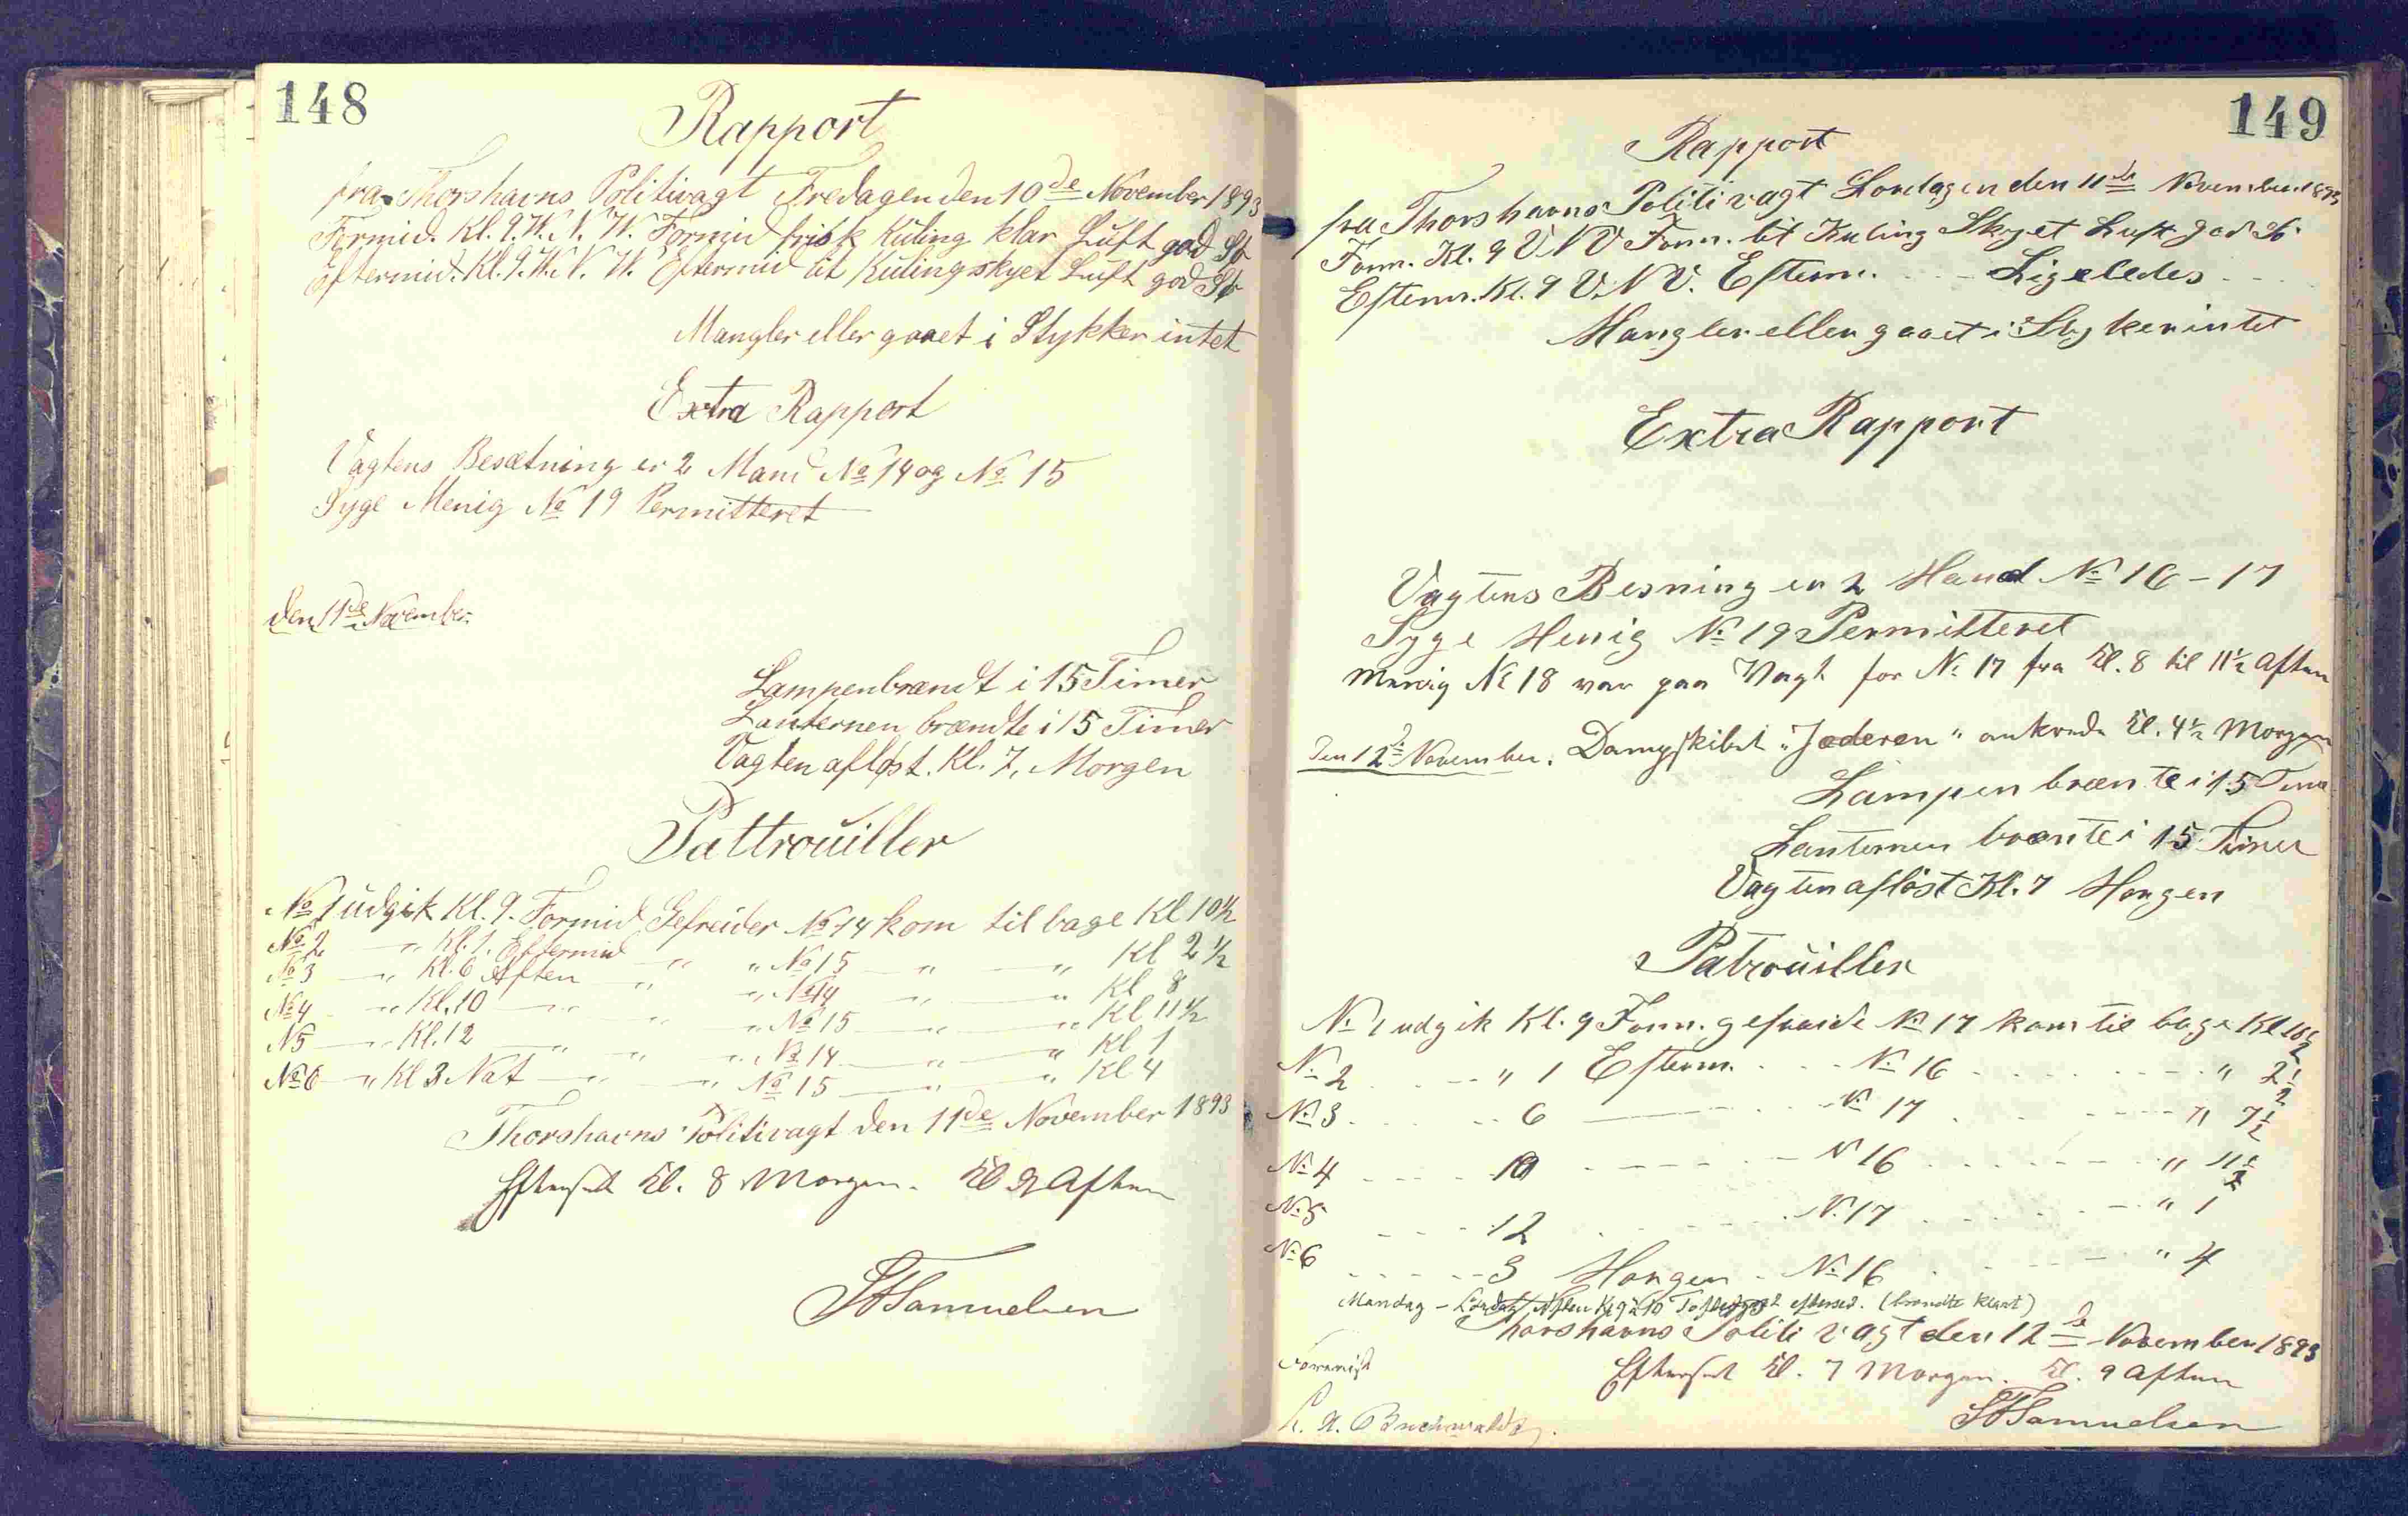 148
Rapport
fra Thorshavns Politivagt Fredagen den 10de November 1893
Formid. Kl. 9. W. N. W. Formid frisk Kuling klar Luft god St
Eftermid. Kl. 9. W. N. W. Eftermid lit Kuling skyet Luft god St
Mangler eller gaaet i Stykker intet
Extra Rapport
Vagtens Besætning er 2 Mand No 14 og No 15
Syge Menig No 19 Permitteret
den 11de November.
Lampen brændt i 15 Timer
Lanternen brændte i 15 Timer
Vagten afløst. Kl. 7, Morgen
Pattrouiller
No 1 udgik Kl. 9. Formid Gefreider No 14 kom til bage Kl 10½
No 2 — " Kl. 1. Eftermid — " " No 15 — " — " Kl 2½
No 3 — " Kl. 6 Aften — " " No 14 — " — " Kl 8
No 4 — " Kl. 10 — " — " " No 15 — " — " Kl 11½
N 5 — " Kl. 12 — " — " " No 14 — " — " Kl 1
No 6 — " Kl 3 Nat — " — " No 15 — " — " Kl 4
Thorshavns Politivagt den 11de November 1893
Efterset Kl. 8 Morgen. Kl 9 Aften
Samuelsen
149
Rapport
fra Thorshavns Politivagt Lordagen den 11de November 1893
Form. Kl. 9 V N V Form. lit Kuling Skyet Luft god St.
Efterm. Kl. 9 V. N V. Efterm. - - - Ligeledes - - -
Mangler eller gaaet i Stykker intet
Extra Rapport
Vagtens Besning er 2 Mand No 16 - 17
Syge Menig No 19 Permitteret
Menig No 18 var paa Vagt for No 17 fra Kl. 8 til 11½ Aften
Den 12de November. Dampskibet "Jæderen" ankrede Kl. 4½ Morgen
Lampen brænte i 15 Time
Lanternen brænte i 15 Timer
Vagten afløst Kl. 7 Morgen
Patrouiller
No 1 udgik Kl. 9 Form. gefraide No 17 kom til bage Kl 10½
No 2 - - - " 1 Efterm. - - - No 16 - - - " 2½
No 3 - - - 6 — - - No 17 - - - " 7½
No 4 - - - 10 - - - N 16 - - - " 11½
No 5 - - - 12 - - - N. 17 - - - " 1
No 6 - - - 3 Morgen - No 16 - - - " 4
Mandag - Aften Kl 9 10 efterset. (brændte Klart)
Thorshavns Politi vagt den 12de November 1893
Efterset Kl. 7 Morgen. Kl. 9 Aften
Samuelsen